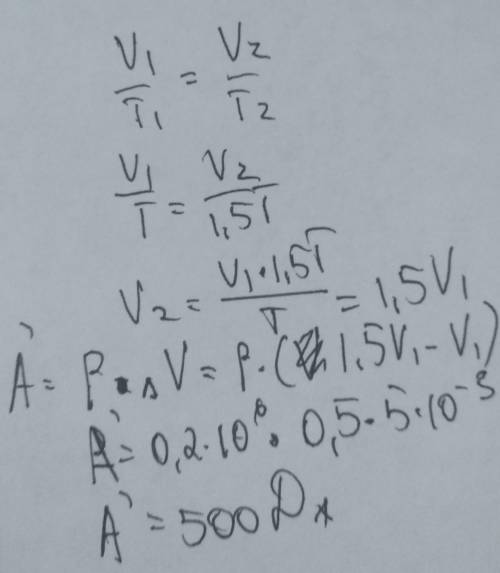 V₁/T₁ = V₂/T₂
V₁/T = V₂/1,5T
V₂ = V₁·1,5T/T = 1,5V₁
A' = P·ΔV = P·(1,5V₁ - V₁)
A' = 0,2·10⁶·0,5·5·10⁻³
A' = 500Дж